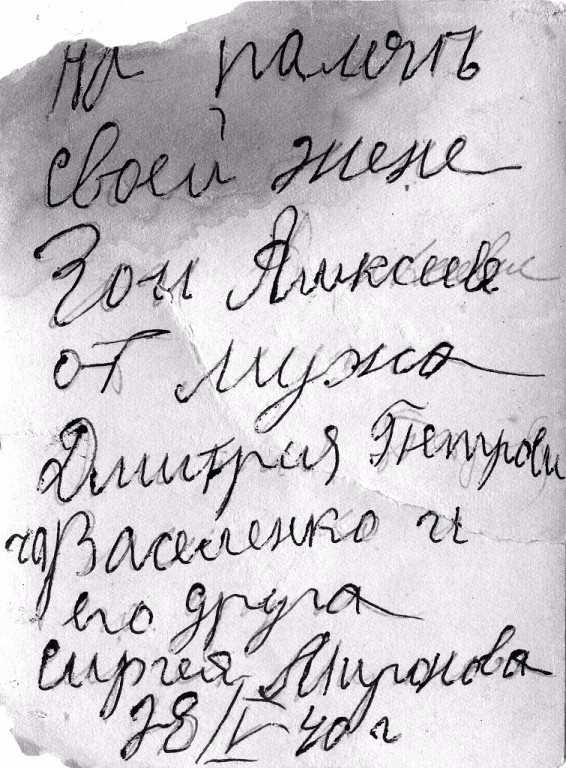 на память
своей жене
Зои Аликсие
от мужа
Дмитрия Петрови
ча Василенко и
его друга
Сиргея Миронова
28/V 40 г